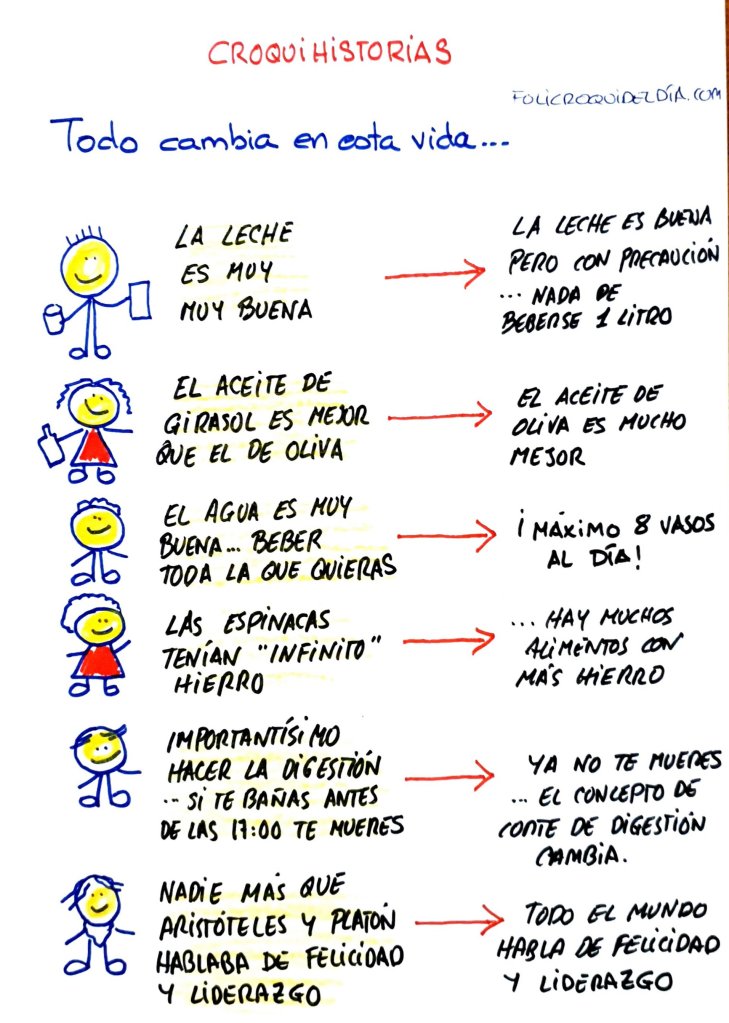 CROQUIHISTORIAS
FOLICROQUIDELDÍA.COM
Todo cambia en esta vida...
LA LECHE
ES MUY
MUY BUENA
LA LECHE ES BUENA
PERO CON PRECAUCIÓN
... NADA DE
BEBERSE 1 LITRO
EL ACEITE DE
GIRASOL ES MEJOR
QUE EL DE OLIVA
EL ACEITE DE
OLIVA ES MUCHO
MEJOR
EL AGUA ES MUY
BUENA... BEBER
TODA LA QUE QUIERAS
¡MÁXIMO 8 VASOS
AL DÍA!
LAS ESPINACAS
TENÍAN "INFINITO"
HIERRO
... HAY MUCHOS
ALIMENTOS CON
MÁS HIERRO
IMPORTANTÍSIMO
HACER LA DIGESTIÓN
... SI TE BAÑAS ANTES
DE LAS 17:00 TE MUERES
YA NO TE MUERES
... EL CONCEPTO DE
CORTE DE DIGESTIÓN
CAMBIA.
NADIE MÁS QUE
ARISTÓTELES Y PLATÓN
HABLABA DE FELICIDAD
Y LIDERAZGO
TODO EL MUNDO
HABLA DE FELICIDAD
Y LIDERAZGO